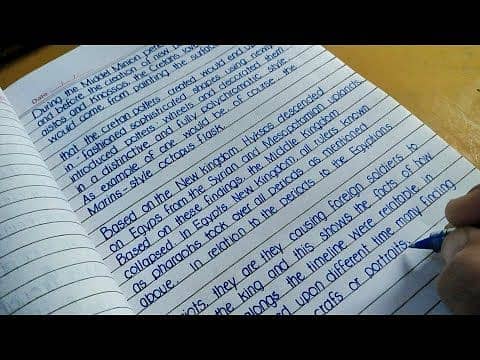 Date
During the Middel Minion peri
and before the creation of new
astos and Knossos, the Cretans
would come from painting the surfac
that the cretan potters created would end u
in - fashioned sophisticated shapes using newly
introduced potters' wheels and decorated them
in a distinctive and fully polychromatic style.
As example of one would be, of course, the
Marins - style octopus flask.
Based on the New kingdom, Hyksos descended
on Egyps from the Syrian and Mesopotamian uplands.
Based on these findings, the Middle Kingdom
collapsed. in Egypts New Kingdom, all rulers known
as pharaohs took over all periods as mentioned
above. in relation to the periods to the Egyptians
they are they causing foreign soldiers to
the king and this shows the facts of how
alongs the timeline were relatable in
upon different time many finding
crafs or portraits